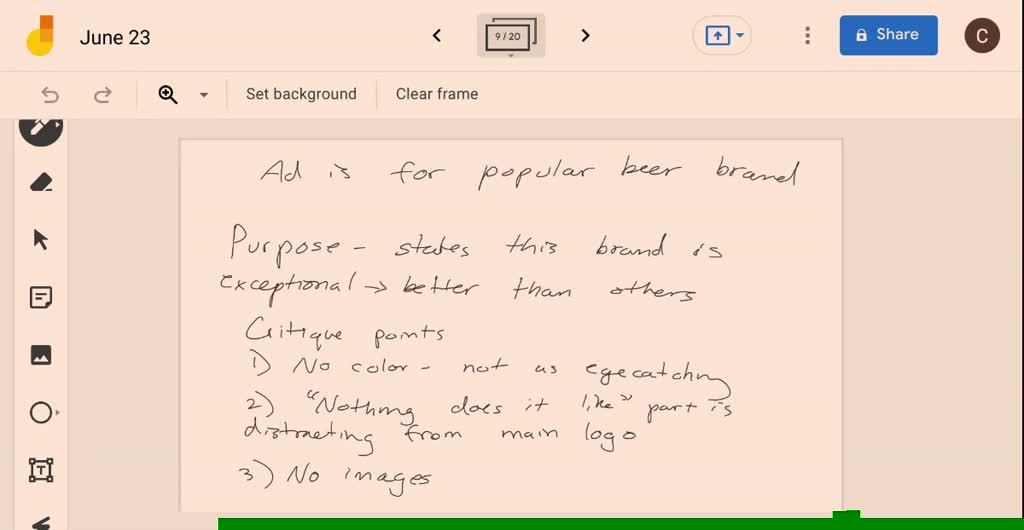 June 23
9 / 20
Share
C
Set background
Clear frame
Ad is for popular beer brand
Purpose - states this brand is
exceptional → better than others
Critique points
1) No color - not as eyecatching
2) "Nothing does it like" part is
distracting from main logo
3) No images